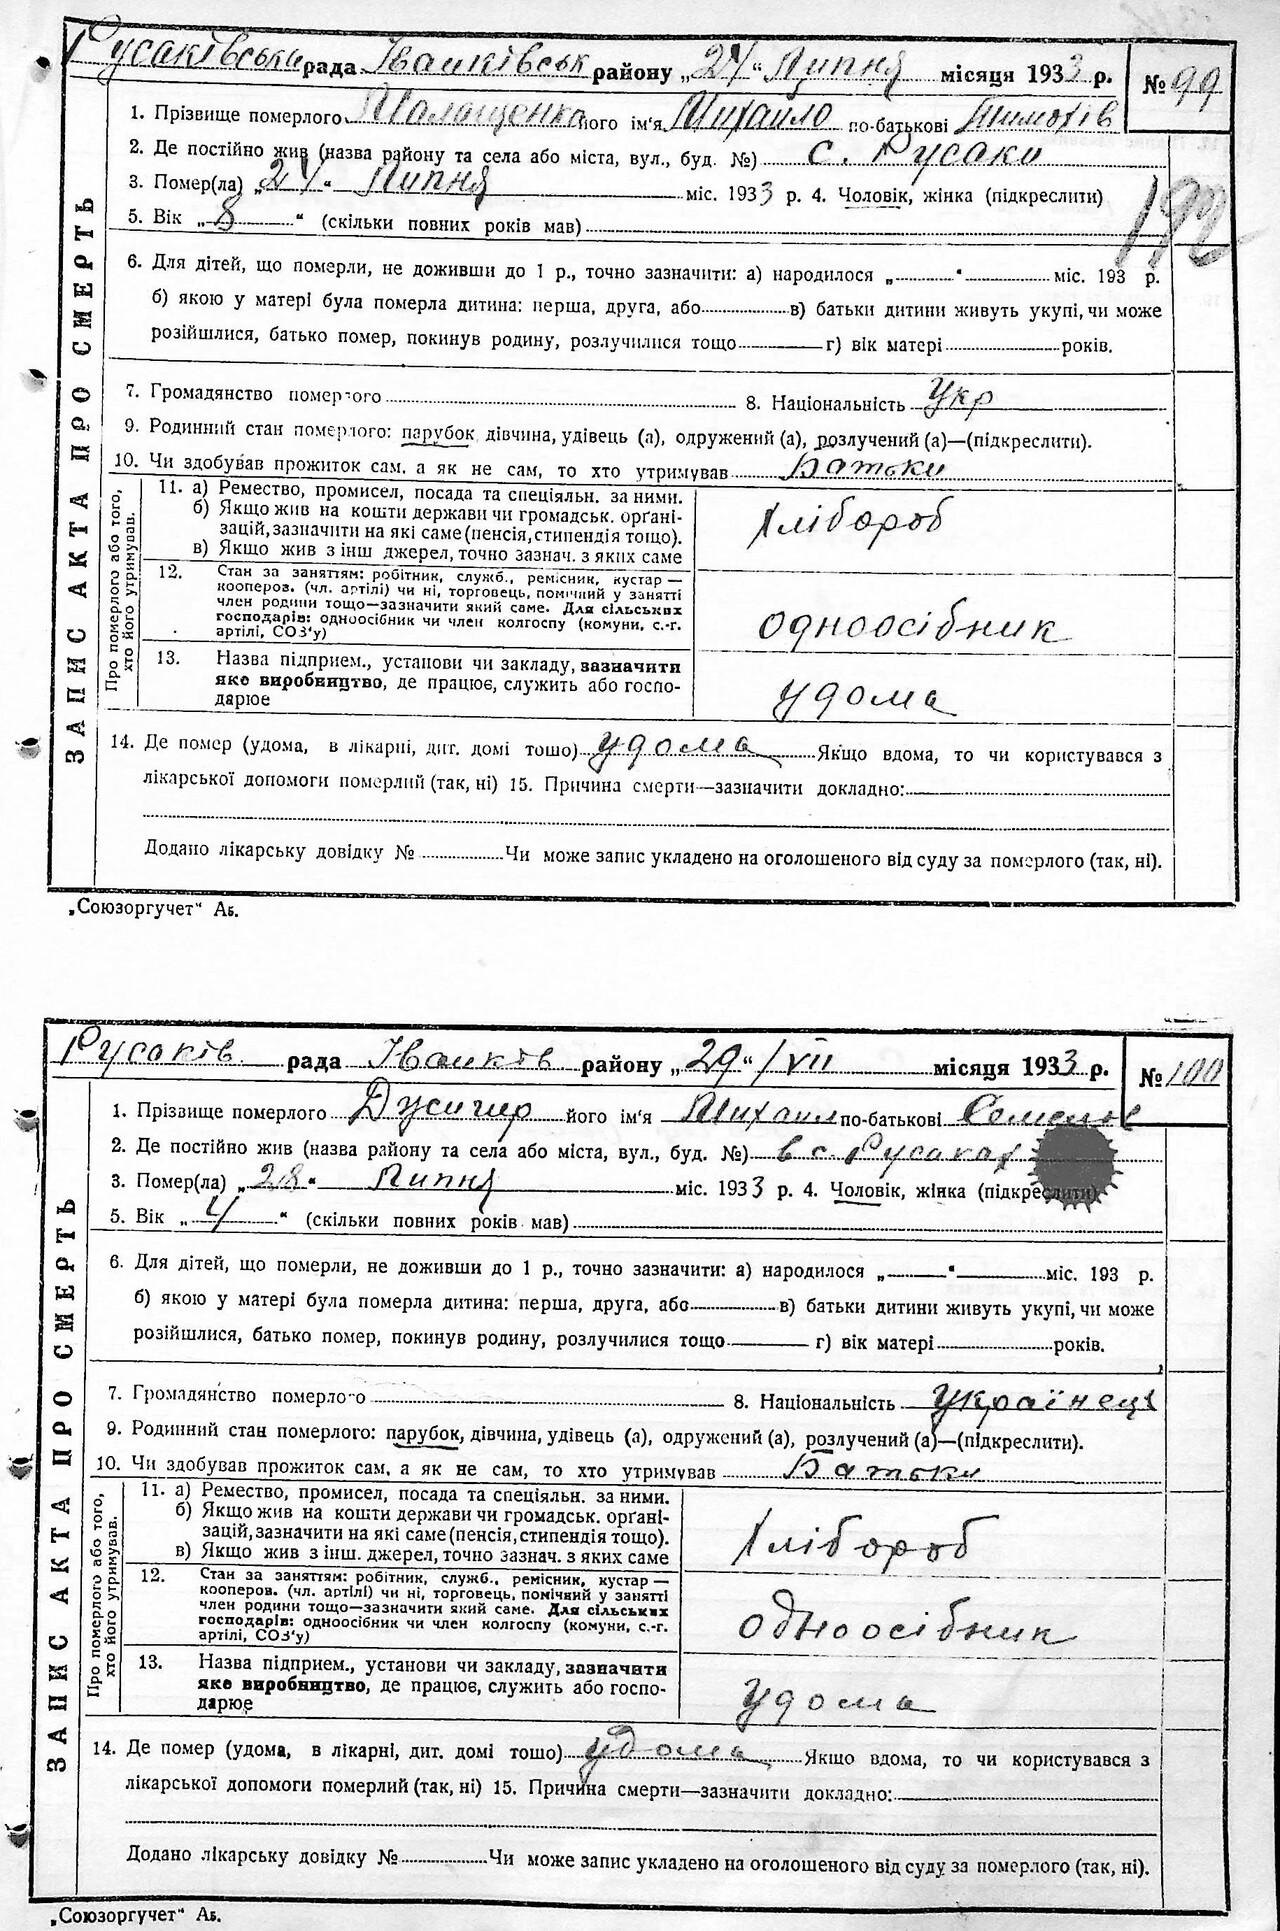 Русаківська рада Іванківськ району „24“ Липня місяця 1933 р. № 99
1. Прізвище померлого Малащенко його ім'я Михайло по-батькові Тимохів
2. Де постійно жив (назва району та села або міста, вул., буд. №) с. Русаки
3. Помер(ла) „24“ Липня міс. 1933 р. 4. Чоловік, жінка (підкреслити)
192
5. Вік „8“ (скільки повних років мав)
6. Для дітей, що померли, не доживши до 1 р., точно зазначити: а) народилося „ “ міс. 193 р.
б) якою у матері була померла дитина: перша, друга, або в) батьки дитини живуть укупі, чи може
розійшлися, батько помер, покинув родину, розлучилися тощо г) вік матері років.
7. Громадянство померлого 8. Національність Укр
9. Родинний стан померлого: парубок, дівчина, удівець (а), одружений (а), розлучений (а)—(підкреслити).
10. Чи здобував прожиток сам, а як не сам, то хто утримував Батьки
Про померлого або того, хто його утримував.
11. а) Ремество, промисел, посада та спеціяльн. за ними.
б) Якщо жив на кошти держави чи громадськ. орґані-
зацій, зазначити на які саме (пенсія, стипендія тощо).
в) Якщо жив з інш джерел, точно зазнач. з яких саме
Хлібороб
12. Стан за заняттям: робітник, служб., ремісник, кустар —
кооперов. (чл. артілі) чи ні, торговець, помічний у занятті
член родини тощо—зазначити який саме. Для сільських
господарів: одноосібник чи член колгоспу (комуни, с.-г.
артілі, СОЗ'у)
одноосібник
13. Назва підприєм., установи чи закладу, зазначити
яке виробництво, де працює, служить або госпо-
дарює
удома
14. Де помер (удома, в лікарні, дит. домі тошо) удома Якщо вдома, то чи користувався з
лікарської допомоги померлий (так, ні) 15. Причина смерти—зазначити докладно:
Додано лікарську довідку № Чи може запис укладено на оголошеного від суду за померлого (так, ні).
ЗАПИС АКТА ПРО СМЕРТЬ
„Союзоргучет“ Аб.
Русаків рада Іванків району „29“ VII місяця 1933 р. № 100
1. Прізвище померлого його ім'я Михаил по-батькові Семенов
2. Де постійно жив (назва району та села або міста, вул., буд. №) в с. Русаках
3. Помер(ла) „28“ Липня міс. 1933 р. 4. Чоловік, жінка (підкреслити)
5. Вік „4“ (скільки повних років мав)
6. Для дітей, що померли, не доживши до 1 р., точно зазначити: а) народилося „ “ міс. 193 р.
б) якою у матері була померла дитина: перша, друга, або в) батьки дитини живуть укупі, чи може
розійшлися, батько помер, покинув родину, розлучилися тощо г) вік матері років.
7. Громадянство померлого 8. Національність українець
9. Родинний стан померлого: парубок, дівчина, удівець (а), одружений (а), розлучений (а)—(підкреслити).
10. Чи здобував прожиток сам, а як не сам, то хто утримував Батьки
Про померлого або того, хто його утримував.
11. а) Ремество, промисел, посада та спеціяльн. за ними.
б) Якщо жив на кошти держави чи громадськ. орґані-
зацій, зазначити на які саме (пенсія, стипендія тощо).
в) Якщо жив з інш. джерел, точно зазнач. з яких саме
Хлібороб
12. Стан за заняттям: робітник, служб., ремісник, кустар —
кооперов. (чл. артілі) чи ні, торговець, помічний у занятті
член родини тощо—зазначити який саме. Для сільських
господарів: одноосібник чи член колгоспу (комуни, с.-г.
артілі, СОЗ'у)
одноосібник
13. Назва підприєм., установи чи закладу, зазначити
яке виробництво, де працює, служить або госпо-
дарює
удома
14. Де помер (удома, в лікарні, дит. домі тошо) удома Якшо вдома, то чи користувався з
лікарської допомоги померлий (так, ні) 15. Причина смерти—зазначити докладно:
Додано лікарську довідку № Чи може запис укладено на оголошеного від суду за померлого (так, ні).
ЗАПИС АКТА ПРО СМЕРТЬ
„Союзоргучет“ Аб.